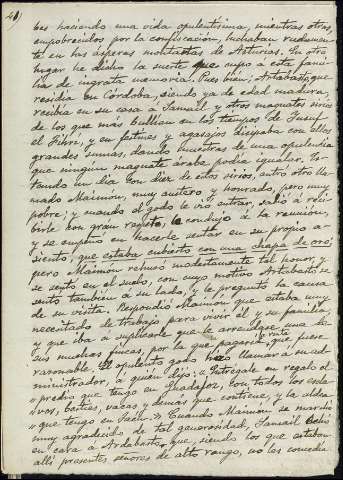 41)
bes haciendo una vida opulentísima, mientras otros,
empobrecidos por la confiscación, luchaban rudamen-
te en las ásperas montañas de Asturias. En otro
lugar he dicho la suerte que cupo a esta fami-
lia de ingrata memoria. Pues bien; Artabasto, que
residía en Córdoba, siendo ya de edad madura,
recibía en su casa a Samaíl y otros magnates sirios
de los que más bullían en los tiempos de Yusuf
el Fihrí, y en festines y agasajos disipaba con ellos
grandes sumas, dando muestras de una opulencia
que ningún magnate árabe podía igualar. Es-
tando un día con diez de estos sirios, entró otro lla-
mado Maimón, muy austero y honrado, pero muy
pobre; y cuando el godo le vio entrar, salió a reci-
birle con gran respeto, le condujo a la reunión,
y se empeñó en hacerle sentar en su propio a-
siento, que estaba cubierto con una chapa de oro;
pero Maimón rehusó modestamente tal honor, y
se sentó en el suelo, con cuyo motivo Artabasto se
sentó también a su lado, y le preguntó la causa
de su visita. Respondió Maimón que estaba muy
necesitado de trabajo para vivir él y su familia,
y que iba a suplicarle que le arrendase una de
sus muchas fincas, por la que pagaría la renta que fuese
razonable. El opulento godo hizo llamar a su ad-
ministrador, a quien dijo: «Entrégale en regalo el
»predio que tengo en Guadajoz, con todos los escla-
»vos, bueyes, vacas y demás que contiene, y la aldea
»que tengo en Jaén.» Cuando Maimón se marchó
muy agradecido de tal generosidad, Samaíl echó
en cara a Ardabasto que, siendo los que estaban
allí presentes señores de alto rango, no les concedía